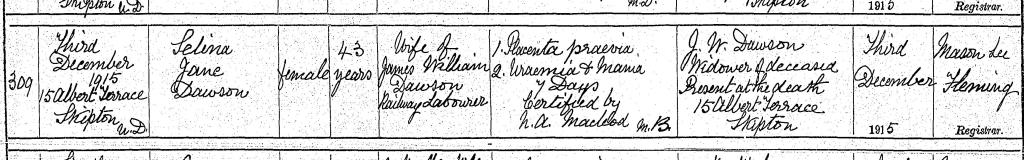 Skipton U.D.
M.B.
Skipton
1915
Registrar.
309
Third
December
1915
15 Albert Terrace
Skipton
U.D.
Selina
Jane
Dawson
female
43
years
Wife of
James William
Dawson
Railway Labourer
1. Placenta praevia
2. Uraemia & Mania
7 Days
Certified by
N. A. Macleod M.B.
J. W. Dawson
Widower of deceased
Present at the death
15 Albert Terrace
Skipton
Third
December
1915
Mason Lee
Fleming
Registrar.